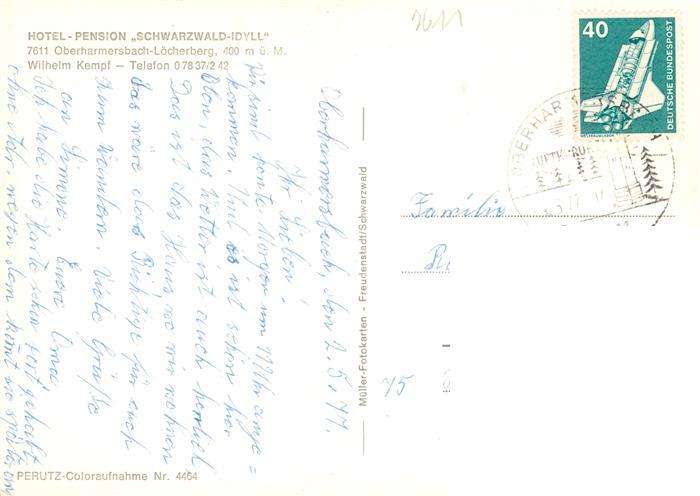 HOTEL-PENSION „SCHWARZWALD-IDYLL"
7611 Oberharmersbach-Löcherberg, 400 m ü. M.
Wilhelm Kempf — Telefon 0 78 37/2 42
3611
40
DEUTSCHE BUNDESPOST
OBERHAR
Oberharmersbach, den 2.5.77.
Ihr Lieben!
Wir sind heute Morgen um Uhr ange=
kommen. Und es ist schön hier
Oben, das Wetter ist auch herrlich
Das ist das Haus wo wir wohnen
Das wäre das Richtige für euch
zum Wandern. Viele Grüße
an Simone. Eure Oma
Ich habe die Karte schon fort gehabt
ohne Adr. wegen dem kommt sie später an
Familie
75
Müller-Fotokarten - Freudenstadt/Schwarzwald
PERUTZ-Coloraufnahme Nr. 4464